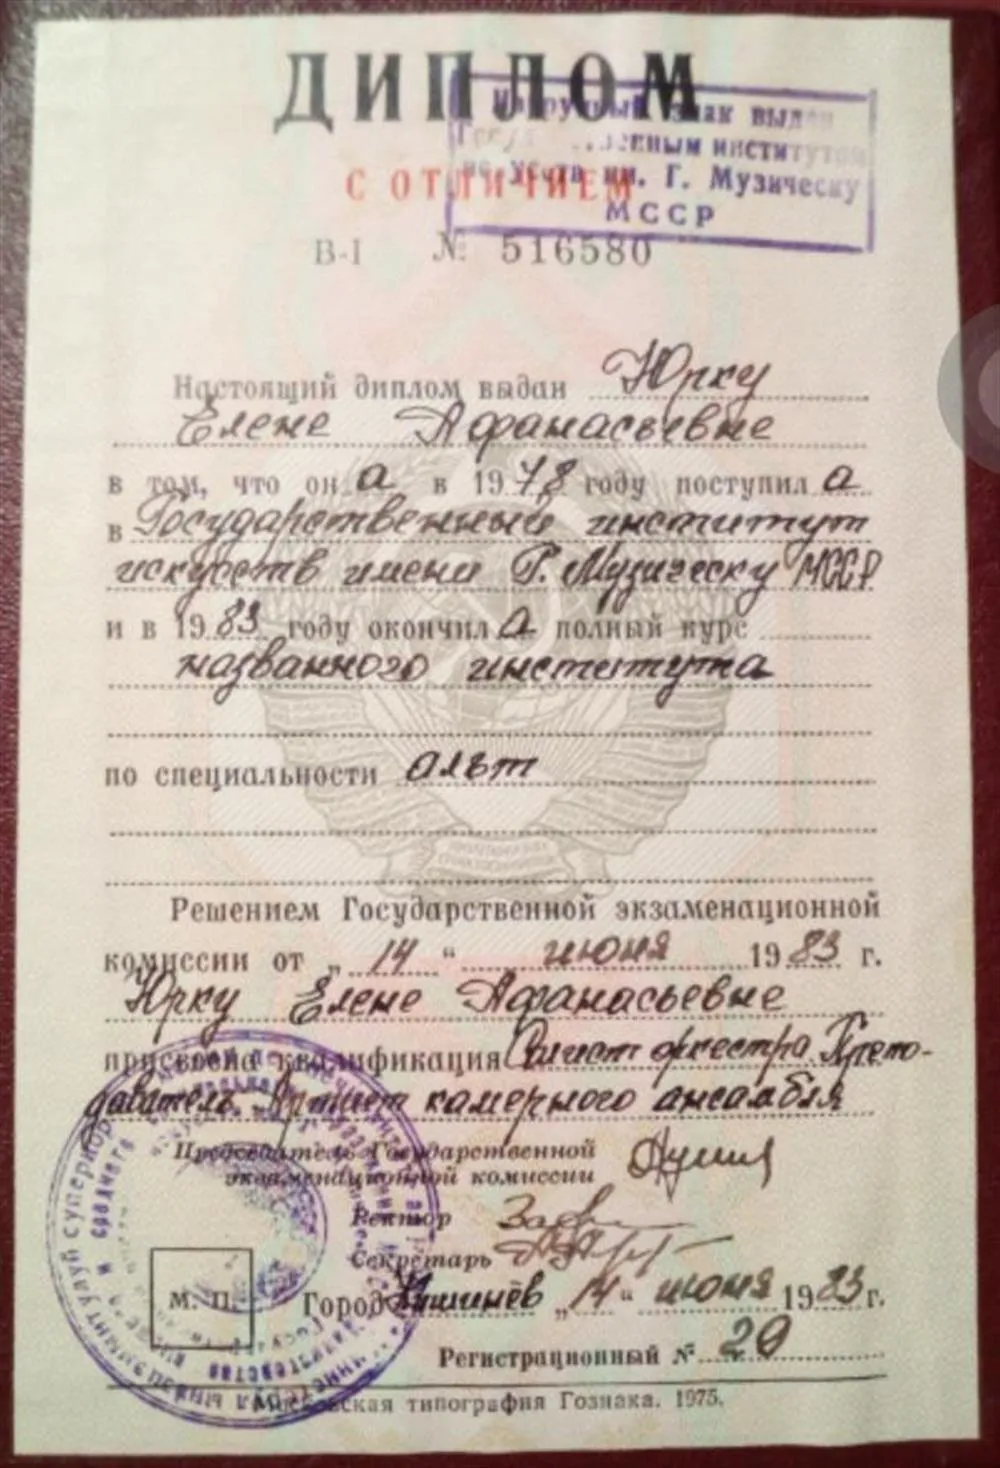 ДИПЛОМ
Нагрудный знак выдан
Государственным институтом
искусств им. Г. Музическу
МССР
С ОТЛИЧИЕМ
В-I № 516580
Настоящий диплом выдан Юрку
Елене Афанасьевне
в том, что он а в 1978 году поступил а
в Государственный институт
искусств имени Г. Музическу МССР
и в 1983 году окончил а полный курс
названного института
по специальности альт
Решением Государственной экзаменационной
комиссии от „14“ июня 1983 г.
Юрку Елене Афанасьевне
присвоена квалификация Солист оркестра. Препо-
даватель. Артист камерного ансамбля
Председатель Государственной
экзаменационной комиссии
Ректор
Секретарь
М. П.
Город Кишинёв „14“ июня 1983 г.
Регистрационный № 20
Московская типография Гознака. 1975.